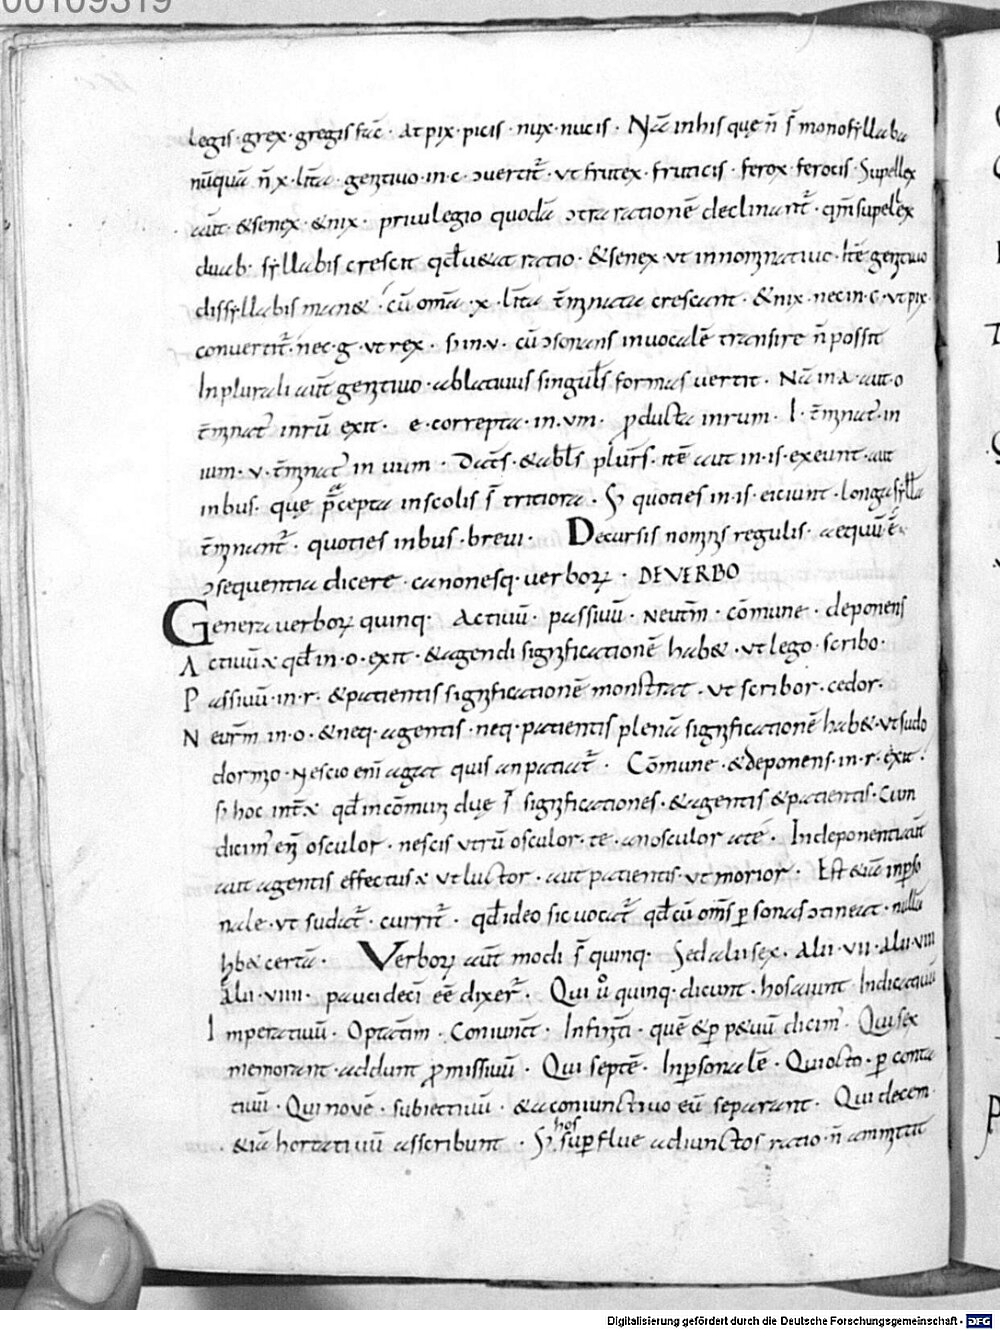 00109319
legis · grex · gregis fac̄ · at pix · picis · nux · nucis · Nā in his quę n̄ s̄ monosyllaba
nūquā n̄ x · lr̄a genꝫtiuo in · c · ɔuertit̄ · ut frutex · fruticis · ferox · ferocis · Supellex
aūt · & senex · & nix · priuilegio quodā ɔtra rationē declinant̄ · qm̄ supellex
duab · syllabis crescit qđ uetat ratio · & senex · ut in nomꝫnatiuo · itē genꝫtiuo
dissyllabis man& · cū om̄a · x · lr̄a t̄mꝫnata crescant · & nix · nec in · c · ut pix
conuertit̄ · nec · g · ut rex · s; in · u · cū ɔsonans in uocalē transire n̄ possit
In plurali aūt genꝫtiuo · ablatiuus singul̄s formas uertit · Nā in a · aut · o
t̄mꝫnat̄ in rū exit · e · correpta · in · um · ꝓducta in rum · I · t̄mꝫnat̄ · in
ium · u · t̄mꝫnat̄ in uum · Datīs · & abl̄s plur̄s · itē aut in · is · exeunt · aut
in bus · quę p̄cepta in scolis s̄ tritiora · S; quoties in · is · eiciunt · longa syll̄a
t̄mꝫnant̄ · quoties in bus · breui · Decursis nomꝫnꝫs regulis · aequū ē
ɔsequentia dicere · canonesq · uerboꝝ · DE VERBO
Genera uerboꝝ quinq · Actiuū · passiuū · Neutrm̄ · cōmune · deponens
Actiuū ÷ qđ in · o · exit · & agendi signꝫficationē hab& · ut lego · scribo ·
Passiuū · in · r · & patientis signꝫficationē monstrat · ut scribor · cedor ·
Neutr̄m in · o · & neq · agentis · neq · patientis plenā signꝫficationē hab& · ut sudo
dormꝫo · Nescio enī agat quis an patiat̄ · Cōmune · & deponens · in · r · exit ·
s; hoc int̄ ÷ qđ in cōmunꝫ duę s̄ signꝫficationes · & agentis & patientis · Cum
dicim̄ enꝫ osculor · nescis utrū osculor · te · an osculor a te · In deponenti aūt
aut agentis effectus ÷ ut luctor · aut patientis · ut morior · Est & iā inꝑso
nale · ut sudat̄ · currit̄ · qđ ideo sic uocat̄ qđ cū om̄s ꝑsonas ɔtineat · nullā
hab& certā · Verboꝝ aūt modi s̄ quinq · Sed alii sex · alii · vii · alii · viii
Alii · viiii · pauci decī eē dixer̄ · Qui ů quinq · dicunt · hos aiunt Indicatiuū
Imperatiuū · Optatīm · Coniunct̄ · Infinꝫt̄i · quē & ꝑpetuū dicim̄ · Qui sex
memorant · addunt ꝓmissiuū · Qui septē · Inꝑsonalē · Qui octo · ꝑconta
tiuū · Qui nouē · subiectiuū · & a coniunctiuo eū separant · Qui decem ·
& iā hortatiuū asscribunt · S; hos suꝑflue adiunctos ratio · n̄ ammꝫttit
Digitalisierung gefördert durch die Deutsche Forschungsgemeinschaft · DFG